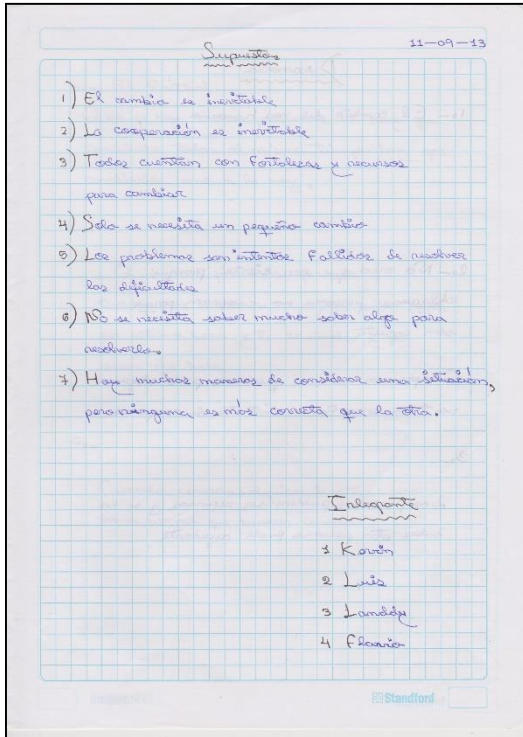 11-09-13
Supuestos
1) El cambio es inevitable
2) La cooperación es inevitable
3) Todos cuentan con fortalezas y recursos
para cambiar
4) Solo se necesita un pequeño cambio
5) Los problemas son intentos fallidos de resolver
las dificultades
6) No se necesita saber mucho sobre algo para
resolverlo.
7) Hay muchas maneras de considerar una situación,
pero ninguna es más correcta que la otra.
Integrante
1 Kevin
2 Luis
3 Landdy
4 Flavio
Standford